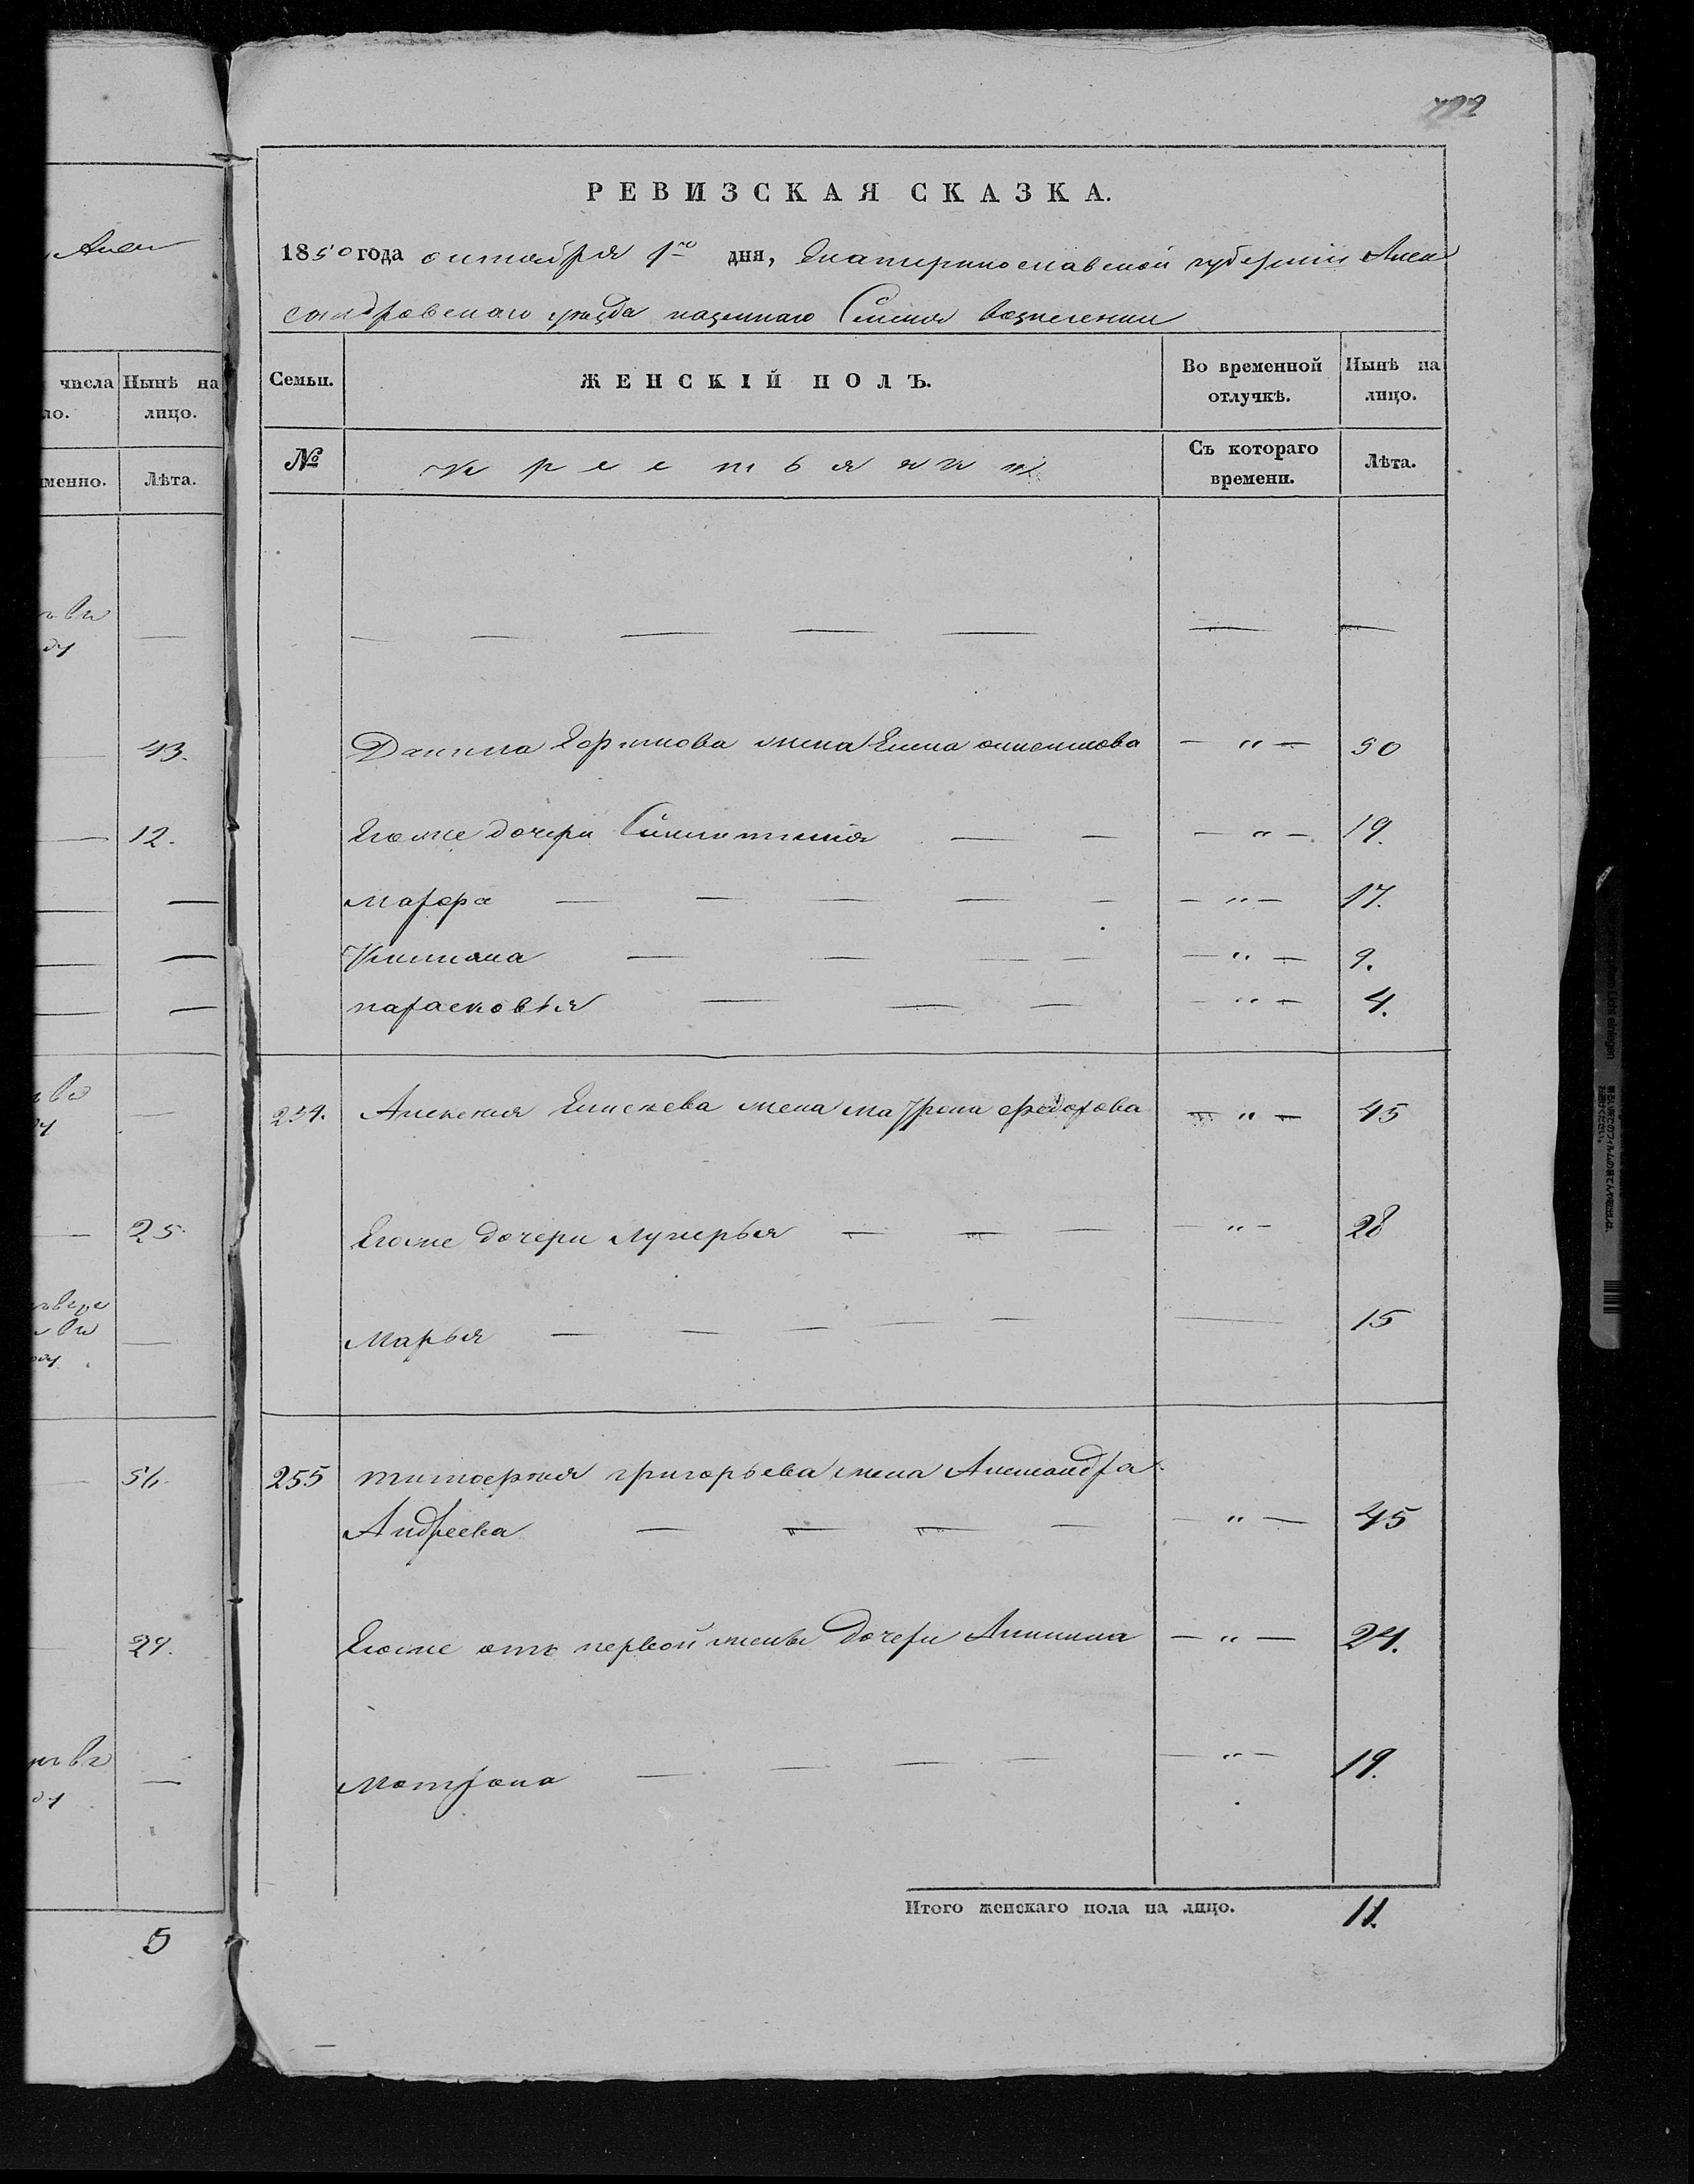 РЕВИЗСКАЯ СКАЗКА.
1850 года октября 1го дня, Екатеринославской губернии Алек
сандровскаго уезда казеннаго Селения Вознесенки
Семьи. ЖЕНСКІЙ ПОЛЪ. Во временной отлучкѣ. Нынѣ на лицо.
№ Крестьянки Съ котораго времени. Лѣта.
Данила жена Елена — " — 50
Егоже дочери — " — 19.
Мавра — " — 17.
Ульяна — " — 9.
парасковья — " — 4.
254. Алексея Елисеева жена Матрона федорова — " — 45
Егоже дочери Лукерья — " — 28
Марья 15
255 тимофея григорьева жена Александра
Андреева — " — 45
Егоже отъ первой жены дочери — " — 24.
Матрона — " — 19.
Итого женскаго пола на лицо. 11.
Алек
числа Нынѣ на
ло. лицо.
менно. Лѣта.
43.
12.
25.
56.
29.
5